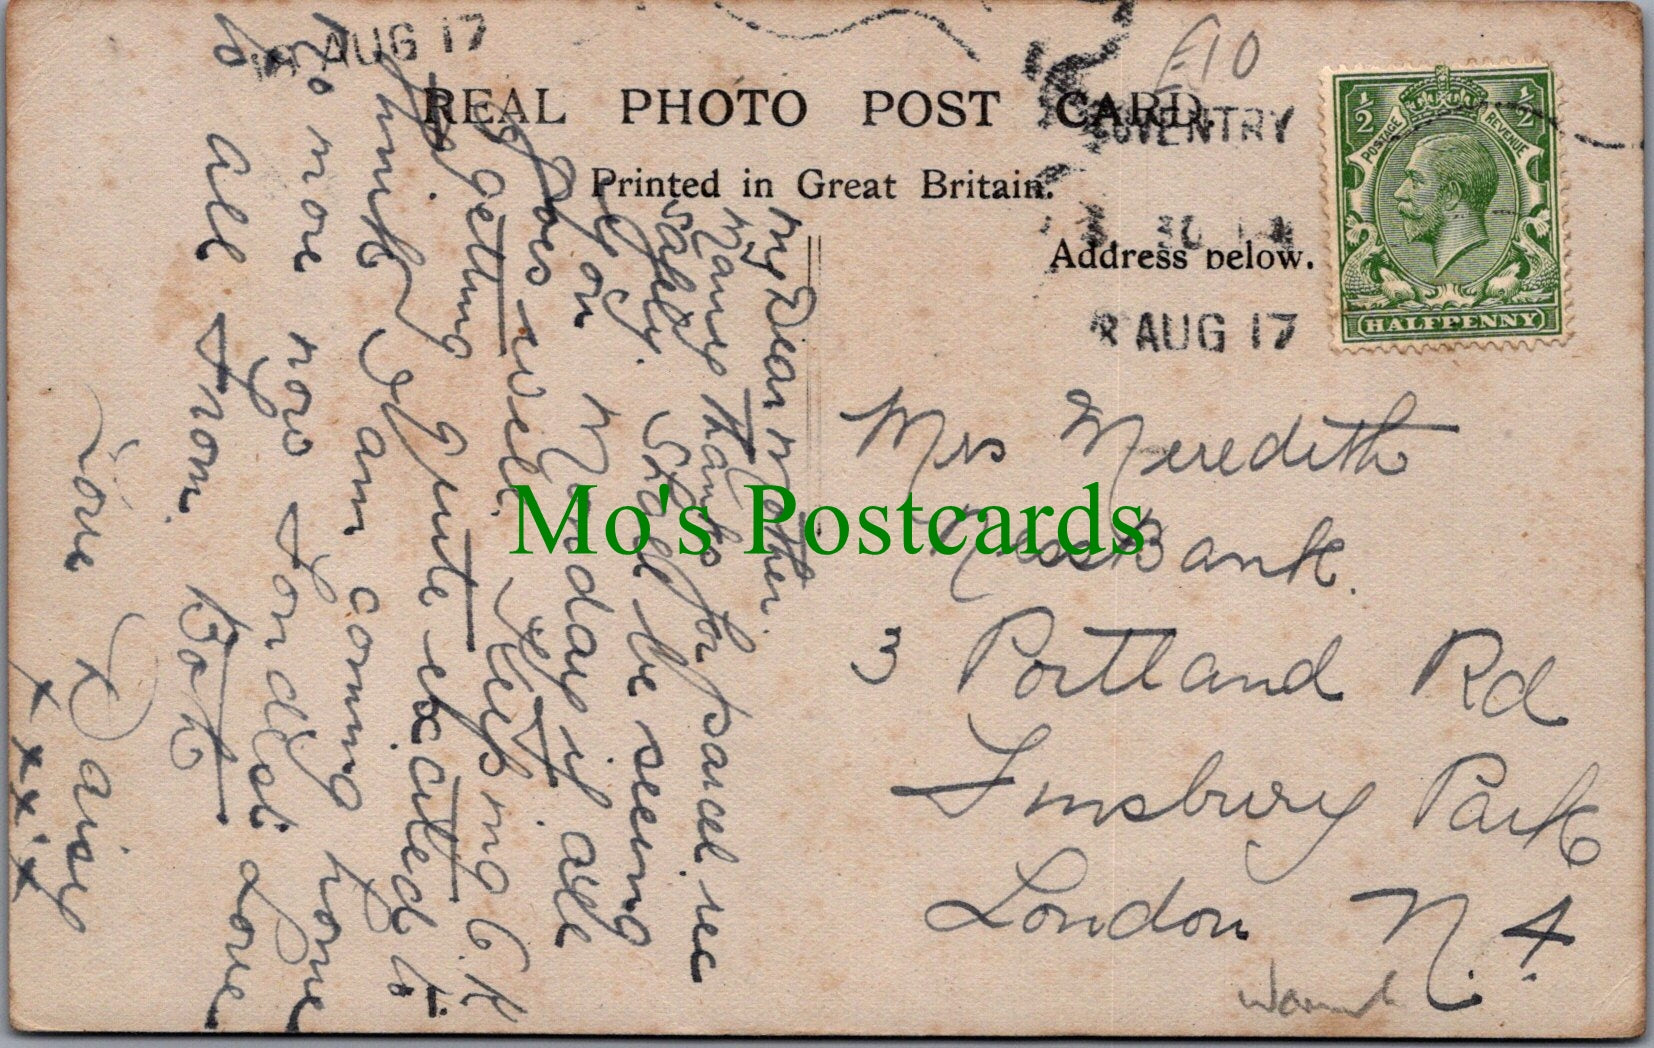 AUG 17
£10
REAL PHOTO POST CARD.
COVENTRY
Printed in Great Britain.
30 PM
Address below.
8 AUG 17
½ ½
POSTAGE REVENUE
HALFPENNY
Mrs Meredith
Ness Bank.
3 Portland Rd
Finsbury Park
London N. 4.
My Dear Mother.
Many thanks for parcel rec
safely. Shall be seeing
you on Monday if all
goes well. Keeping O.K
getting quite excited to
think I am coming home
no more now Fondest Love
to all from Both
Love Daisy
x x x x x
Mo's Postcards